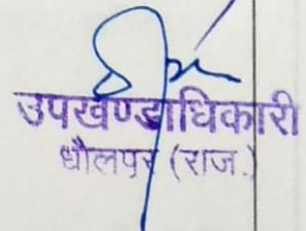 उपखण्डाधिकारी
धौलपुर (राज.)